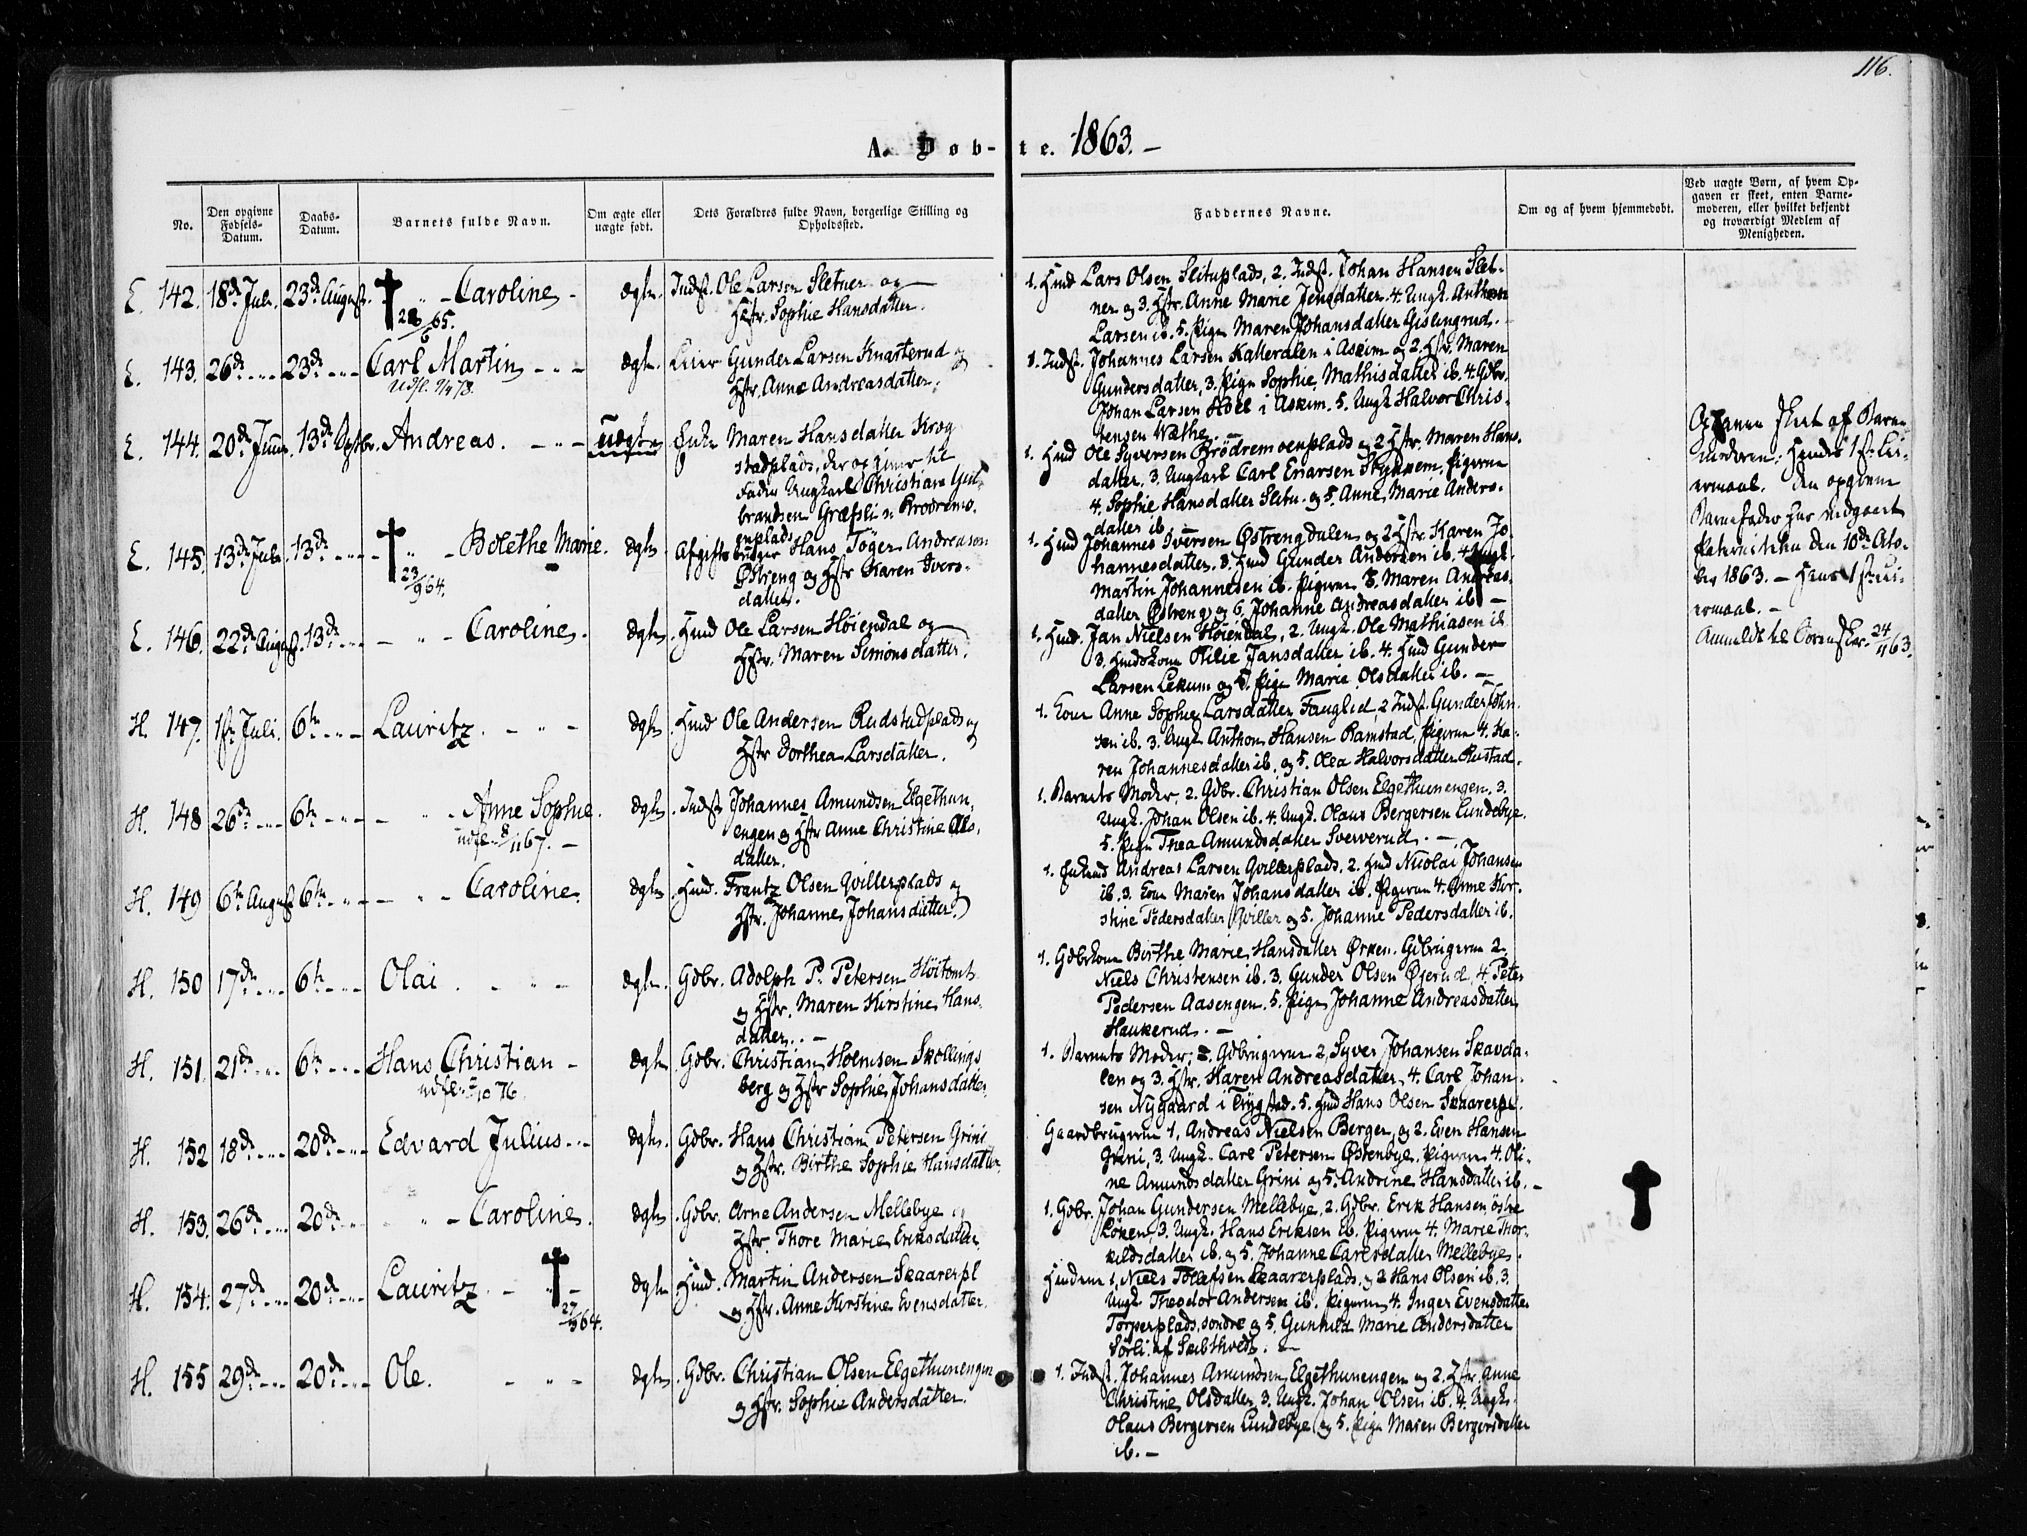 116.
A. Døb-te. 1863. –
No.
Den opgivne Fødsels-Datum.
Daabs-Datum.
Barnets fulde Navn.
Om ægte eller uægte født.
Dets Forældres fulde Navn, borgerlige Stilling og Opholdssted.
Faddernes Navne.
Om og af hvem hjemmedøbt.
Ved uægte Børn, af hvem Opgaven er skeet, enten Barnemoderen, eller hvilket bekjendt og troværdigt Medlem af Menigheden.
E. 142. 18de Juli. 23de August. † " – Caroline – ægte. Indst. Ole Larsen Sletner og
Hstr. Sophie Hansdatter.
1. Husd Lars Olsen Slituplads, 2. Indst. Johan Hansen Slet-
ner og 3. Hstr. Anne Marie Jensdatter. 4. Ungk. Anthon
Larsen ib. 5. Pige Maren Johansdatter Gislingrud.
E. 143. 26de " 23de " Carl Martin – " – ægte. Leier Gunder Larsen Knarterud og
udfl. 1/4 73.
Hstr. Anne Andreasdatter.
1. Indst. Johannes Larsen Kallerdalen i Askim og 2. Hstr. Maren
Gundersdatter, 3. Pige Sophie Mathisdatter ib. 4. Gdbr.
Johan Larsen Hoel i Askim. 5. Ungk Halvor Chris-
tensen Næthe. –
E. 144. 20de Juni. 13de Septbr. Andreas. – " – Uægte Enke Maren Hansdatter Krog-
stadplads, der opgiver til
Fader Ungkarl Christian Gul-
brandsen Græsli n. Brødremo-
enplads
1. Husd Ole Syversen Brødremoenplads og 2 Hstr. Maren Hans-
datter, 3. Ungkarl Carl Enarsen Stykkem, Pigerne
4. Sophie Hansdatter Slitu. og 5. Anne Marie Anders-
datter ib.
Opgaven skeet af Barne-
moderen; Hendes 1ste Lei-
ermaal. Den opgivne
Barnefader har vedgaaet
Paterniteten den 10de Octo-
ber 1863. – Hans 1ste Lei-
ermaal. –
Anmeldt til Sorenskr. 24/11 63.
E. 145. 13de Juli. 13de " † " – Bolethe Marie. ægte. Afgiftsbruger Hans Töger Andreasen
23/9 64.
Østreng og Hstr Karen Ivers-
datter.
1. Husd Johannes Iversen Østrengdalen og 2 Hstr. Karen Jo-
hannesdatter. 3. Husd Gunder Andersen ib. 4. Ungk.
Martin Johannesen ib. Pigerne 5. Maren Andreas-
datter Østreng og 6. Johanne Andreasdatter ib. –
E. 146. 22de August. 13de " – " – Caroline. ægte. Husd Ole Larsen Höiendal og
Hstr. Maren Simonsdatter.
1. Husd. Jan Nielsen Höiendal, 2. Ungk. Ole Mathiasen ib
3. Husdskone Otilie Jansdatter ib. 4. Husd Gunder
Larsen Lekum og 5. Pige Marie Olsdatter ib. –
H. 147. 1ste Juli. 6te " Lauritz. – " – ægte Husd Ole Andersen Rudstadplads og
Hstr Dorthea Larsdatter.
1. Kone Anne Sophie Larsdatter Fauglid, 2 Indst. Gunder John-
sen ib. 3. Ungk Anthon Hansen Ramstad, Pigerne 4. Ka-
ren Johannesdatter ib. og 5. Olea Halvorsdatter Rustad.
H. 148 26de " 6te " – " – Anne Sophie. ægte. Indst Johannes Amundsen Elgethun-
udfl. 8/11 67. –
engen og Hstr Anne Christine Ols-
datter.
1. Barnets Moder, 2. Gdbr. Christian Olsen Elgethunengen. 3.
Ungk. Johan Olsen ib. 4. Ungk. Olaus Bergersen Lundebye.
5. Pige Thea Amundsdatter Sververud. –
H. 149 6te August 6te " – " – Caroline. ægte Husd. Frantz Olsen Qvillerplads og
Hstr. Johanne Johansdatter.
1. Enkemd Andreas Larsen Qvillerplads. 2. Husd Nicolai Johansen
ib. 3. Kone Maren Johansdatter ib. Pigerne 4. Anne Kir-
stine Pedersdatter Qviller og 5. Johanne Pedersdatter ib.
H. 150 17de " 6te " Olai. – " – ægte. Gdbr. Adolph P. Petersen Höitomt
og Hstr. Maren Kirstine Hans-
datter. –
1. Gdbrkone Birthe Marie Hansdatter Ørken. Gdbrugerne 2.
Niels Christensen ib. 3. Gunder Olsen Øjerud, 4. Peter
Pedersen Aasengen. 5. Pige Johanne Andreasdatter
Haukerud. –
H. 151. 21de " 6te " Hans Christian – ægte Gdbr. Christian Holmsen Skollings-
udfl. /10 76.
berg og Hstr Sophie Johansdatter
1. Barnets Moder; Gdbrugerne 2. Syver Johansen Skavda-
len og 3. Hstr. Karen Andreasdatter, 4. Carl Johan-
sen Nygaard i Trygstad. 5. Husd Hans Olsen Skaarerpl.
H. 152 18de " 20de " Edvard Julius. – ægte. Gdbr. Hans Christian Petersen Grini
og Hstr. Birthe Sophie Hansdatter.
Gaardbrugerne 1. Andreas Nielsen Berger, og 2. Even Hansen
Grini, 3. Ungk. Carl Petersen Østenbye. Pigerne 4. Oli-
ne Amundsdatter Grini og 5. Andrine Hansdatter ib. –
H. 153. 26de " 20de " – " – Caroline. ægte. Gdbr. Arne Andersen Mellebye og
Hstr. Thore Marie Eriksdatter.
1. Gdbr. Johan Gundersen Mellebye, 2. Gdbr. Erik Hansen östre
Löken, 3. Ungk. Hans Eriksen ib. Pigerne 4. Marie Thor-
kildsdatter ib. og 5. Johanne Carlsdatter Mellebye.
H. 154. 27de " 20de " Lauritz. – † – ægte Husd. Martin Andersen Skaarerpl
27/3 64.
og Hstr. Anne Kirstine Evensdatter.
Husdmne 1. Niels Tollefsen Skaarerplads, og 2 Hans Olsen ib. 3.
Ungk Theodor Andersen ib. Pigerne 4. Inger Evensdatter
Torperplads, söndre og 5. Gunhild Marie Andersdatter
Sörli af . –
H. 155 29de " 20de " Ole. – " – ægte. Gdbr. Christian Olsen Elgethunengen
og Hstr. Sophie Andersdatter.
1. Indst. Johannes Amundsen Elgethunengen og 2. Hstr. Anne
Christine Olsdatter, 3. Ungk. Johan Olsen ib. 4. Ungk.
Olaus Bergersen Lundebye og 5. Pige Maren Bergersdatter
ib. –